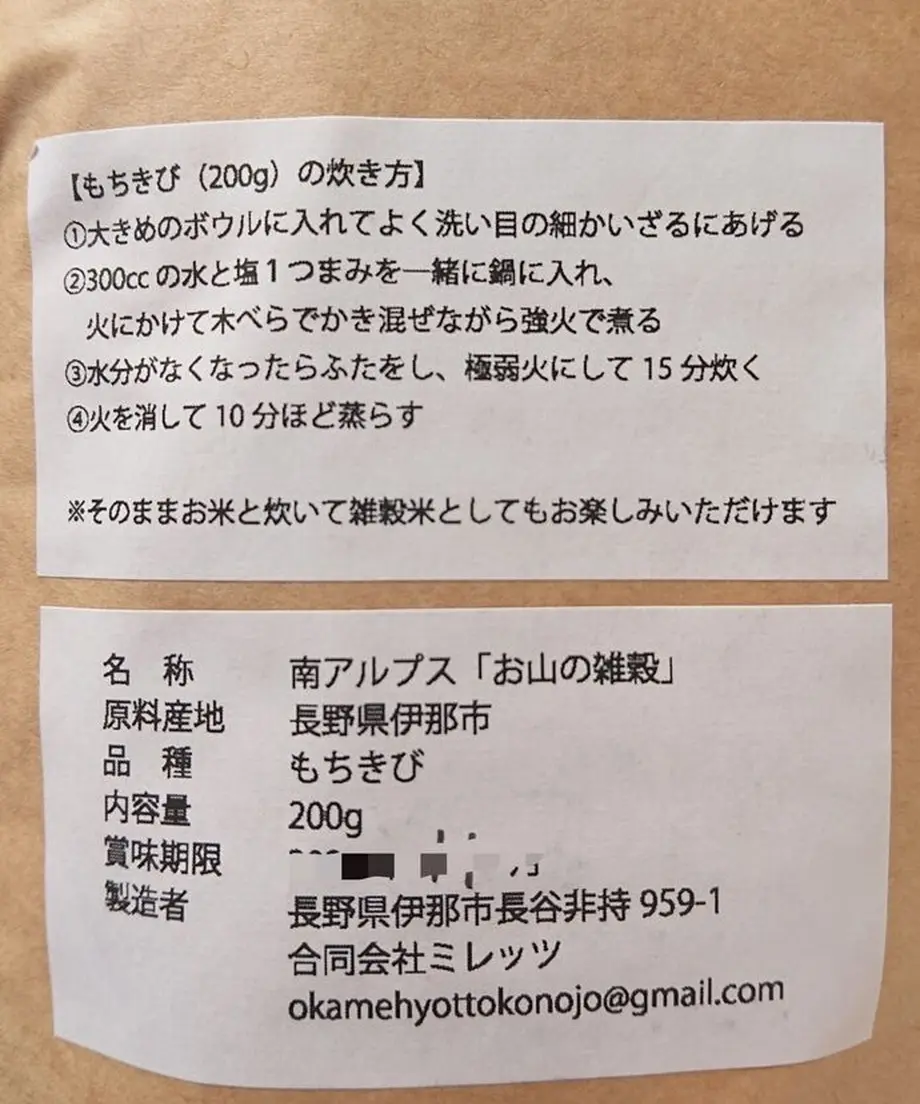 【もちきび（200g）の炊き方】
①大きめのボウルに入れてよく洗い目の細かいざるにあげる
②300ccの水と塩1つまみを一緒に鍋に入れ、
火にかけて木べらでかき混ぜながら強火で煮る
③水分がなくなったらふたをし、極弱火にして15分炊く
④火を消して10分ほど蒸らす
※そのままお米と炊いて雑穀米としてもお楽しみいただけます
名　称　南アルプス「お山の雑穀」
原料産地　長野県伊那市
品　種　もちきび
内容量　200g
賞味期限
製造者　長野県伊那市長谷非持959-1
合同会社ミレッツ
okamehyottokonojo@gmail.com